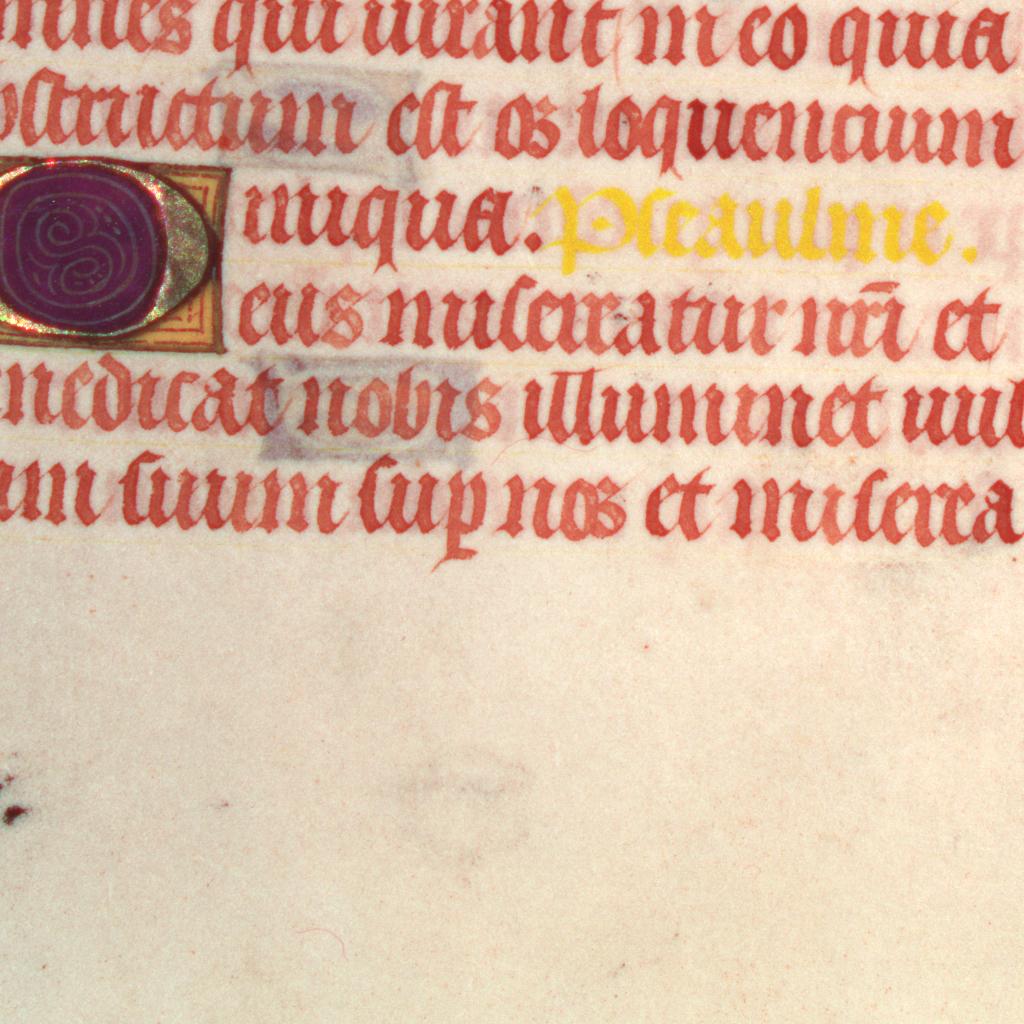 mnes qui iurant in eo quia
bstructum est os loquencium
iniqua. Pseaulme.
eus misereatur nr̄i et
enedicat nobis illuminet uul
um suum sup nos et miserea